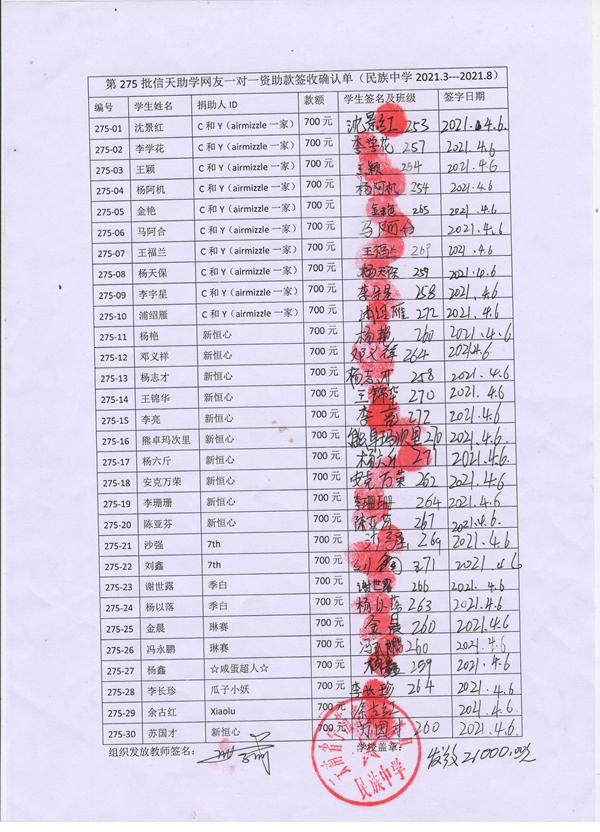 第 275 批信天助学网友一对一资助款签收确认单（民族中学 2021.3---2021.8）
编号 学生姓名 捐助人 ID 款额 学生签名及班级 签字日期
275-01 沈景红 C 和 Y（airmizzle 一家） 700 元 沈景红 253 2021.4.6.
275-02 李学花 C 和 Y（airmizzle 一家） 700 元 李学花 257 2021.4.6
275-03 王颖 C 和 Y（airmizzle 一家） 700 元 王颖 254 2021.4.6
275-04 杨阿机 C 和 Y（airmizzle 一家） 700 元 杨阿机 254 2021.4.6
275-05 金艳 C 和 Y（airmizzle 一家） 700 元 金艳 265 2021.4.6
275-06 马阿合 C 和 Y（airmizzle 一家） 700 元 马阿合 2021.4.6
275-07 王福兰 C 和 Y（airmizzle 一家） 700 元 王福兰 269 2021.4.6
275-08 杨天保 C 和 Y（airmizzle 一家） 700 元 杨天保 259 2021.4.6
275-09 李宇星 C 和 Y（airmizzle 一家） 700 元 李宇星 258 2021.4.6
275-10 浦绍雁 C 和 Y（airmizzle 一家） 700 元 浦绍雁 272 2021.4.6
275-11 杨艳 新恒心 700 元 杨艳 260 2021.4.6
275-12 邓义祥 新恒心 700 元 邓义祥 264 2021.4.6
275-13 杨志才 新恒心 700 元 杨志才 258 2021.4.6
275-14 王锦华 新恒心 700 元 王锦华 270 2021.4.6
275-15 李亮 新恒心 700 元 李亮 272 2021.4.6
275-16 熊卓玛次里 新恒心 700 元 熊卓玛次里 270 2021.4.6
275-17 杨六斤 新恒心 700 元 杨六斤 271 2021.4.6
275-18 安克万荣 新恒心 700 元 安克万荣 262 2021.4.6
275-19 李珊珊 新恒心 700 元 李珊珊 264 2021.4.6
275-20 陈亚芬 新恒心 700 元 陈亚芬 267 2021.4.6
275-21 沙强 7th 700 元 沙强 269 2021.4.6
275-22 刘鑫 7th 700 元 271 2021.4.6
275-23 谢世露 季白 700 元 谢世露 266 2021.4.6
275-24 杨以落 季白 700 元 杨以落 263 2021.4.6
275-25 金晨 琳赛 700 元 金晨 260 2021.4.6
275-26 冯永鹏 琳赛 700 元 冯永鹏 260 2021.4.6
275-27 杨鑫 ☆咸蛋超人☆ 700 元 杨鑫 259 2021.4.6
275-28 李长珍 瓜子小妖 700 元 李长珍 264 2021.4.6
275-29 余古红 Xiaolu 700 元 余古红 2021.4.6
275-30 苏国才 新恒心 700 元 苏国才 260 2021.4.6
组织发放教师签名： 学校盖章： 发放21000.00元
民族中学